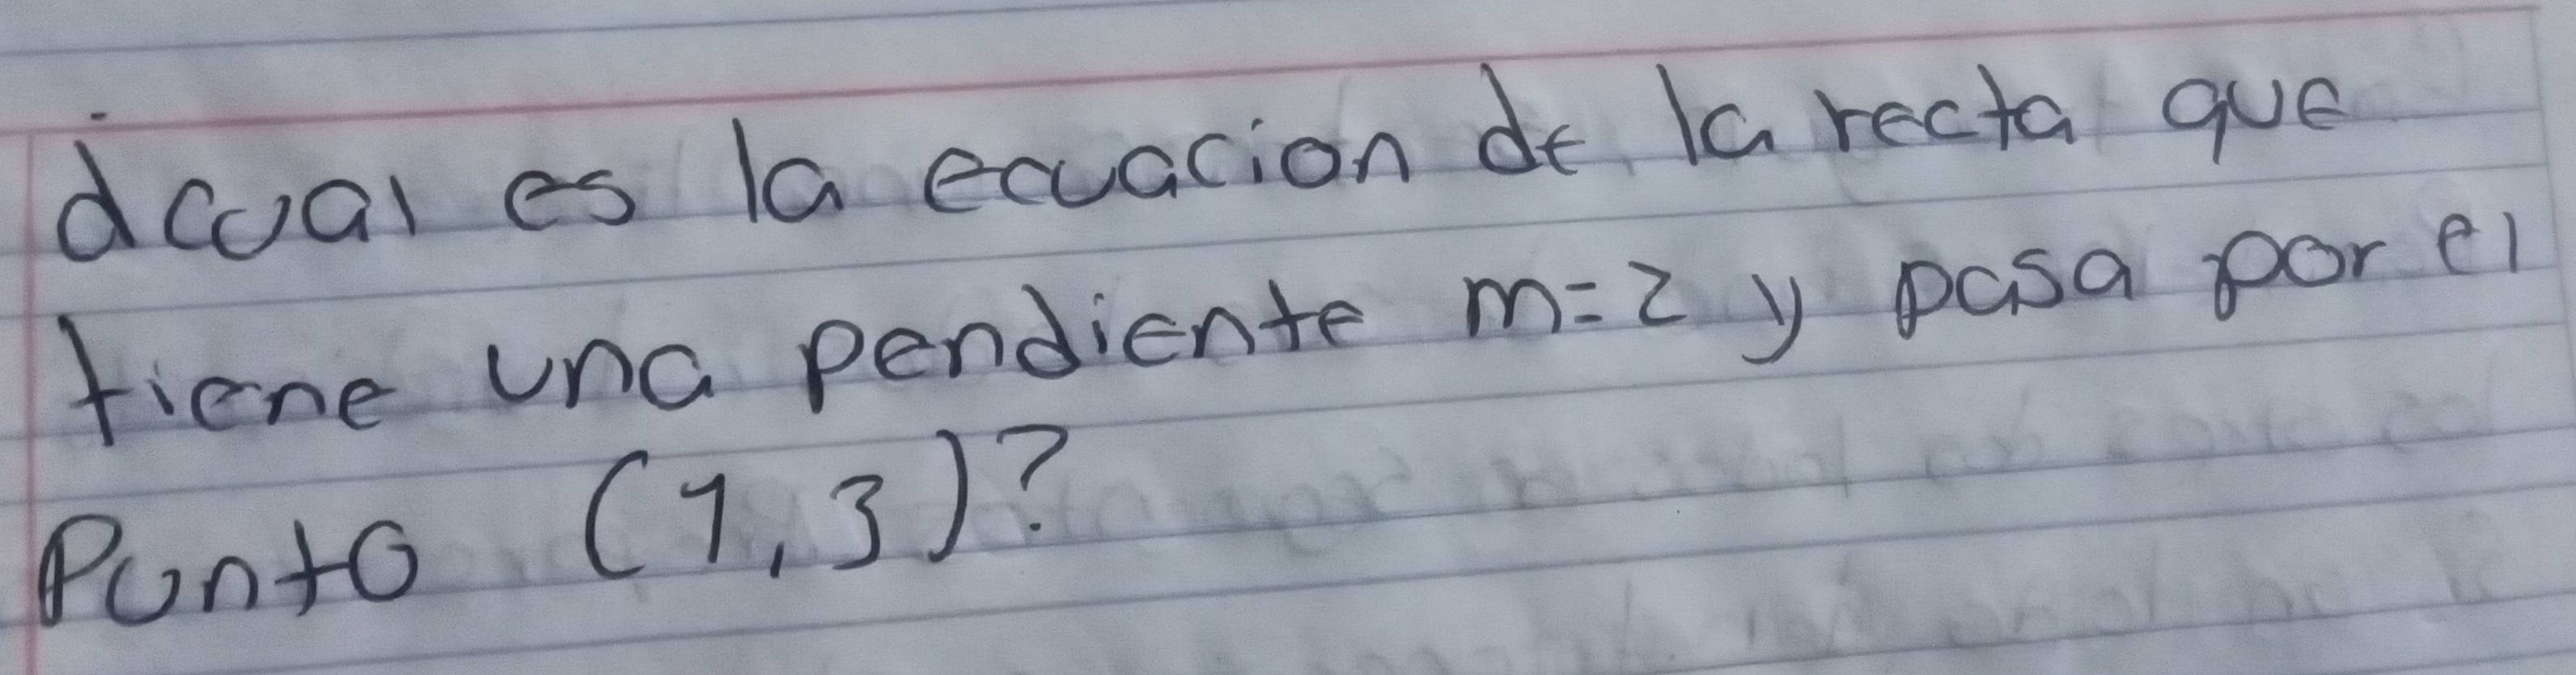 ¿cual es la ecuacion de la recta que
tiene una pendiente m=2 y pasa por el
Punto (1,3)?